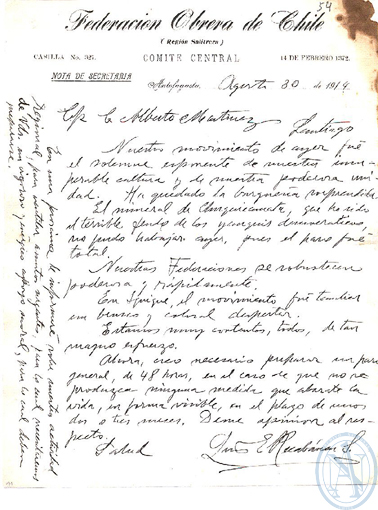 54
Federacion Obrera de Chile
(Region Salitrera)
COMITE CENTRAL
CASILLA No.
14 DE FEBRERO 1372.
NOTA DE SECRETARIA
Antofagasta, Agosto 30 de 1919
Cp. C. Alberto Martinez
Santiago
Nuestro movimiento de ayer fué
el solemne esponente de nuestra insu-
perible cultura y de nuestra poderosa uni-
dad. Ha quedado la burguesia sorprendida.
El mineral de Chuquicamata, que ha sido
el terrible feudo de los yanquis
no pudo trabajar ayer, pues el paro fué
total.
Nuestras Federaciones se robustecen
poderosa y rápidamente.
En Iquique, el movimiento fué tambien
un bueno y colosal despertar.
Estamos muy contentos, todos, de tan
magno esfuerzo.
Ahora, creo necesario preparar un paro
general, de 48 horas, en el caso de que no se
produzca ninguna medida que abarate la
vida, en forma visible, en el plazo de unos
dos o tres meses. Deme opinion al res-
pecto.
Salud
Luis E. Recabárren S.
En una proxima le informaré sobre nuestra actividad
Regional, para
de Uds. un apoyo moral, para lo cual deben